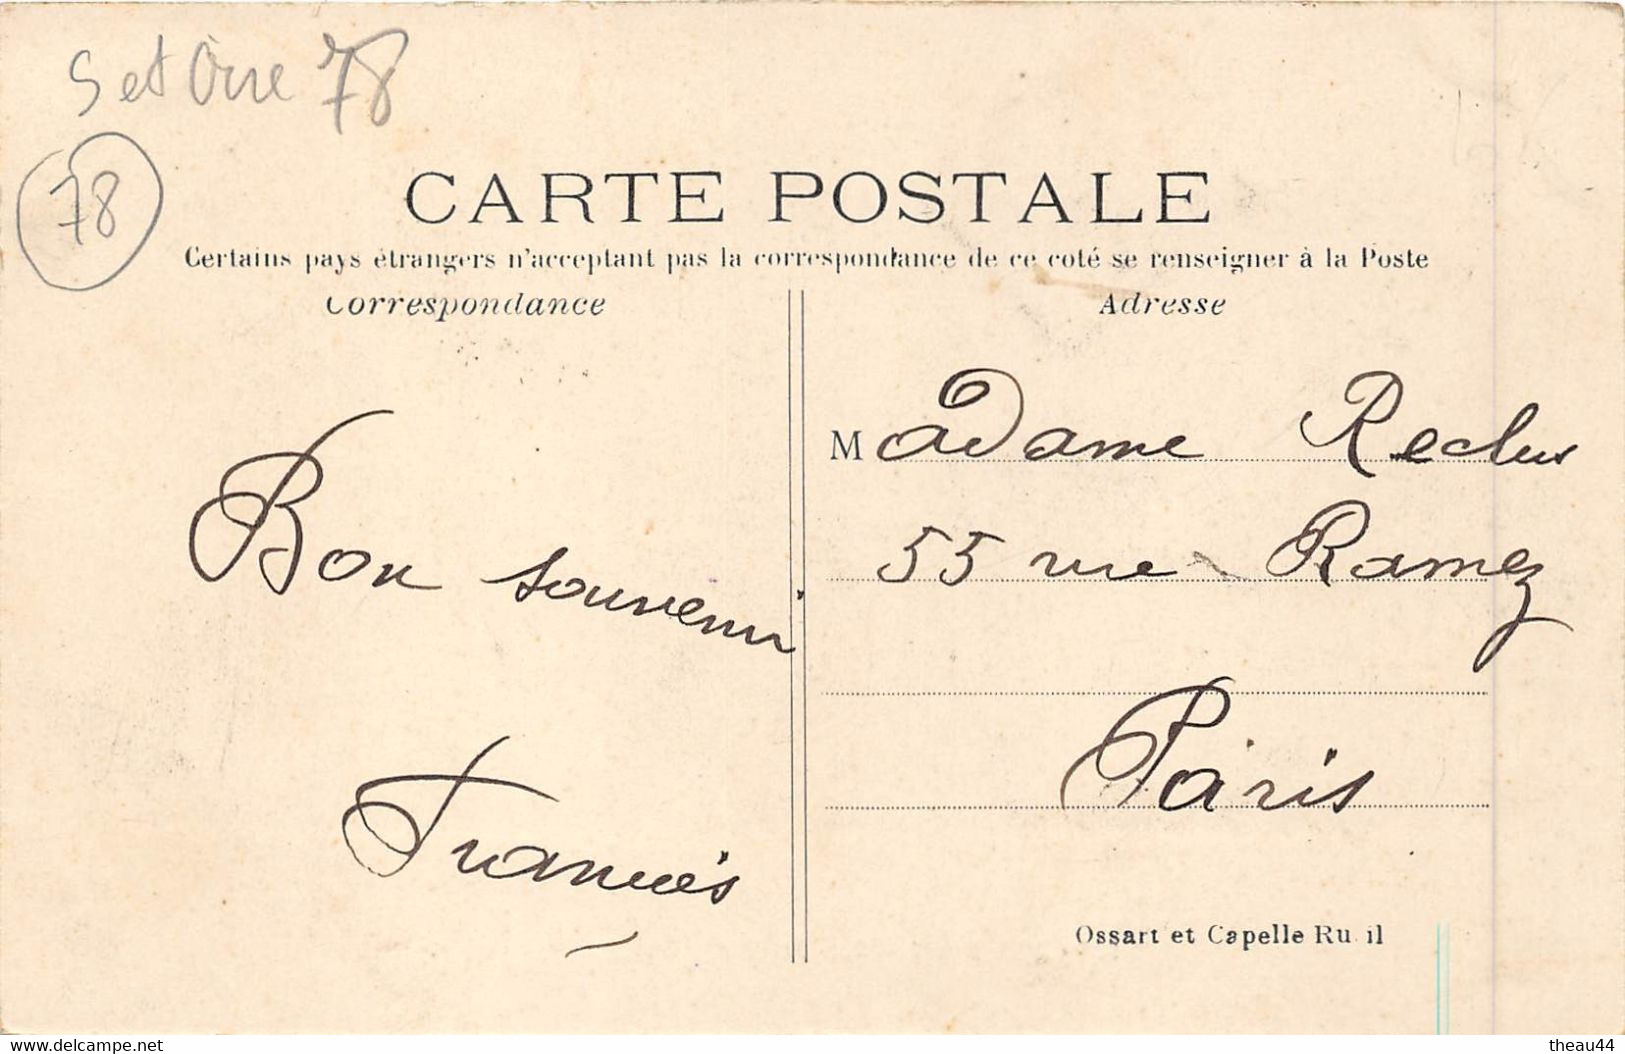 S et Oise 78
78
CARTE POSTALE
Certains pays étrangers n'acceptant pas la correspondance de ce coté se renseigner à la Poste
Correspondance
Adresse
Madame Reclus
55 rue Ramey
Paris
Bon souvenir
Francès
Ossart et Capelle Ru il
www.delcampe.net
theau44